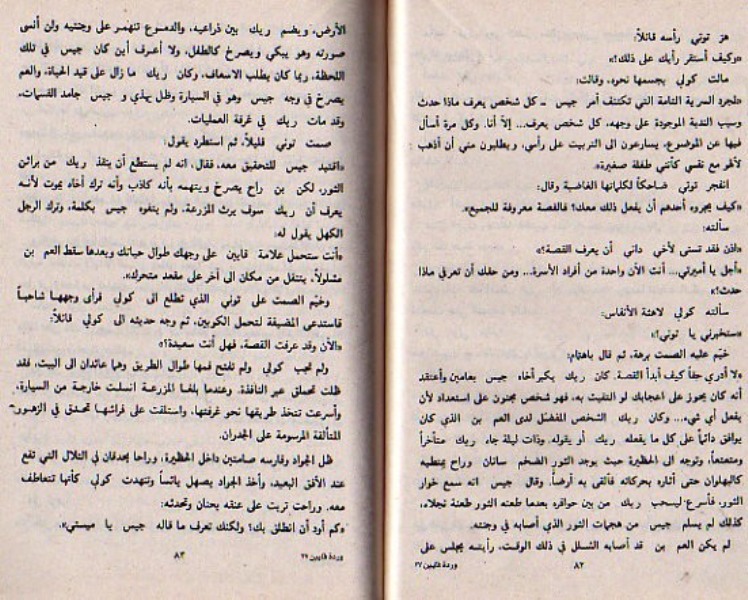 هز توتي رأسه قائلاً:
«وكيف أستقر رأيك على ذلك؟»
مالت كولي بجسمها نحوه، وقالت:
«لمجرد السرية التامة التي تكتنف أمر جيس - كل شخص يعرف ماذا حدث
وسبب الندبة الموجودة على وجهه، كل شخص يعرف... إلا أنا. وكل مرة أسأل
فيها عن الموضوع، يسارعون الى التربيت على رأسي، ويطلبون مني أن أذهب
لألهو مع نفسي كأنني طفلة صغيرة».
انفجر توتي ضاحكاً لكلماتها الغاضبة وقال:
«كيف يجرؤ أحدهم أن يفعل ذلك معك؟ فالقصة معروفة للجميع».
سألته:
«اذن فقد تسنى لأخي داني أن يعرف القصة؟»
«أجل يا أميرتي... أنت الآن واحدة من أفراد الأسرة... ومن حقك أن تعرفي ماذا
حدث؟»
سألته كولي لاهثة الأنفاس:
«ستخبرني يا توني؟»
خيّم عليه الصمت برهة، ثم قال باهتمام:
«لا أدري حقاً كيف أبدأ القصة. كان ريك يكبر أخاه جيس بعامين وأعتقد
أنه كان يحوز على اعجابك لو التقيت به، فهو شخص مجنون على استعداد لأن
يفعل أي شيء... وكان ريك الشخص المفضل لدى العم بن الذي كان
يوافق دائماً على كل ما يفعله ريك أو يقوله. وذات ليلة جاء ريك متأخراً
ومتعتعاً، وتوجه الى الحظيرة حيث يوجد الثور الضخم ساتان وراح يمتطيه
كالبهلوان حتى أثاره بحركاته فألقى به أرضاً. وقال جيس انه سمع خوار
الثور، فأسرع ليسحب ريك من بين حوافره بعدما طعنه الثور طعنة نجلاء،
كذلك لم يسلم جيس من هجمات الثور الذي أصابه في وجنته.
لم يكن العم بن قد أصابه الشلل في ذلك الوقت، رأيته يجلس على
٨٢
وردة قايين ٢٧
الأرض، ويضم ريك بين ذراعيه، والدموع تنهمر على وجنتيه ولن أنسى
صورته وهو يبكي ويصرخ كالطفل، ولا أعرف أين كان جيس في تلك
اللحظة، ربما كان يطلب الاسعاف، وكان ريك ما زال على قيد الحياة، والعم
يصرخ في وجه جيس وهو في السيارة وظل يهذي و جيس جامد القسمات،
وقد مات ريك في غرفة العمليات.
صمت توني قليلاً، ثم استطرد يقول:
«اقتيد جيس للتحقيق معه، فقال، انه لم يستطع أن ينقذ ريك من براثن
الثور، لكن بن راح يصرخ ويتهمه بأنه كاذب وأنه ترك أخاه يموت لأنه
يعرف أن ريك سوف يرث المزرعة، ولم يتفوه جيس بكلمة، وترك الرجل
الكهل يقول له:
«أنت ستحمل علامة قايين على وجهك طوال حياتك وبعدها سقط العم بن
مشلولاً، ينتقل من مكان الى آخر على مقعد متحرك».
وخيّم الصمت على توني الذي تطلع الى كولي فرأى وجهها شاحباً
فاستدعى المضيفة لتحمل الكوبين، ثم وجه حديثه الى كولي قائلاً:
«الآن وقد عرفت القصة، فهل أنت سعيدة؟»
ولم تجب كولي ولم تفتح فمها طوال الطريق وهما عائدان الى البيت، فقد
ظلت تحملق عبر النافذة. وعندما بلغا المزرعة انسلت خارجة من السيارة،
وأسرعت تتخذ طريقها نحو غرفتها، واستلقت على فراشها تحدق في الزهور
المتألقة المرسومة على الجدران.
ظل الجواد وفارسه صامتين داخل الحظيرة، وراحا يحدقان في التلال التي تقع
عند الأفق البعيد، وأخذ الجواد يصهل يائساً وتنهدت كولي كأنها تتعاطف
معه. وراحت تربت على عنقه بحنان وتحدثه:
«كم أود أن انطلق بك؟ ولكنك تعرف ما قاله جيس يا ميستي».
٨٣
وردة قايين ٢٧